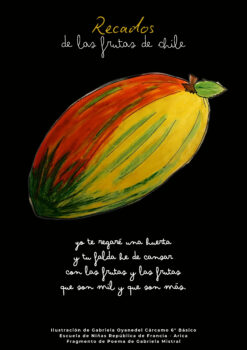 Recados
de las frutas de chile
yo te regaré una huerta
y tu falda he de cansar
con las frutas y las frutas
que son mil y que son más.
Ilustración de Gabriela Oyanedel Cárcamo 6° Básico
Escuela de Niñas República de Francia - Arica
Fragmento de Poema de Gabriela Mistral